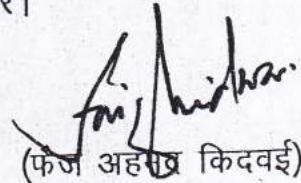 (फैज अहमद किदवई)